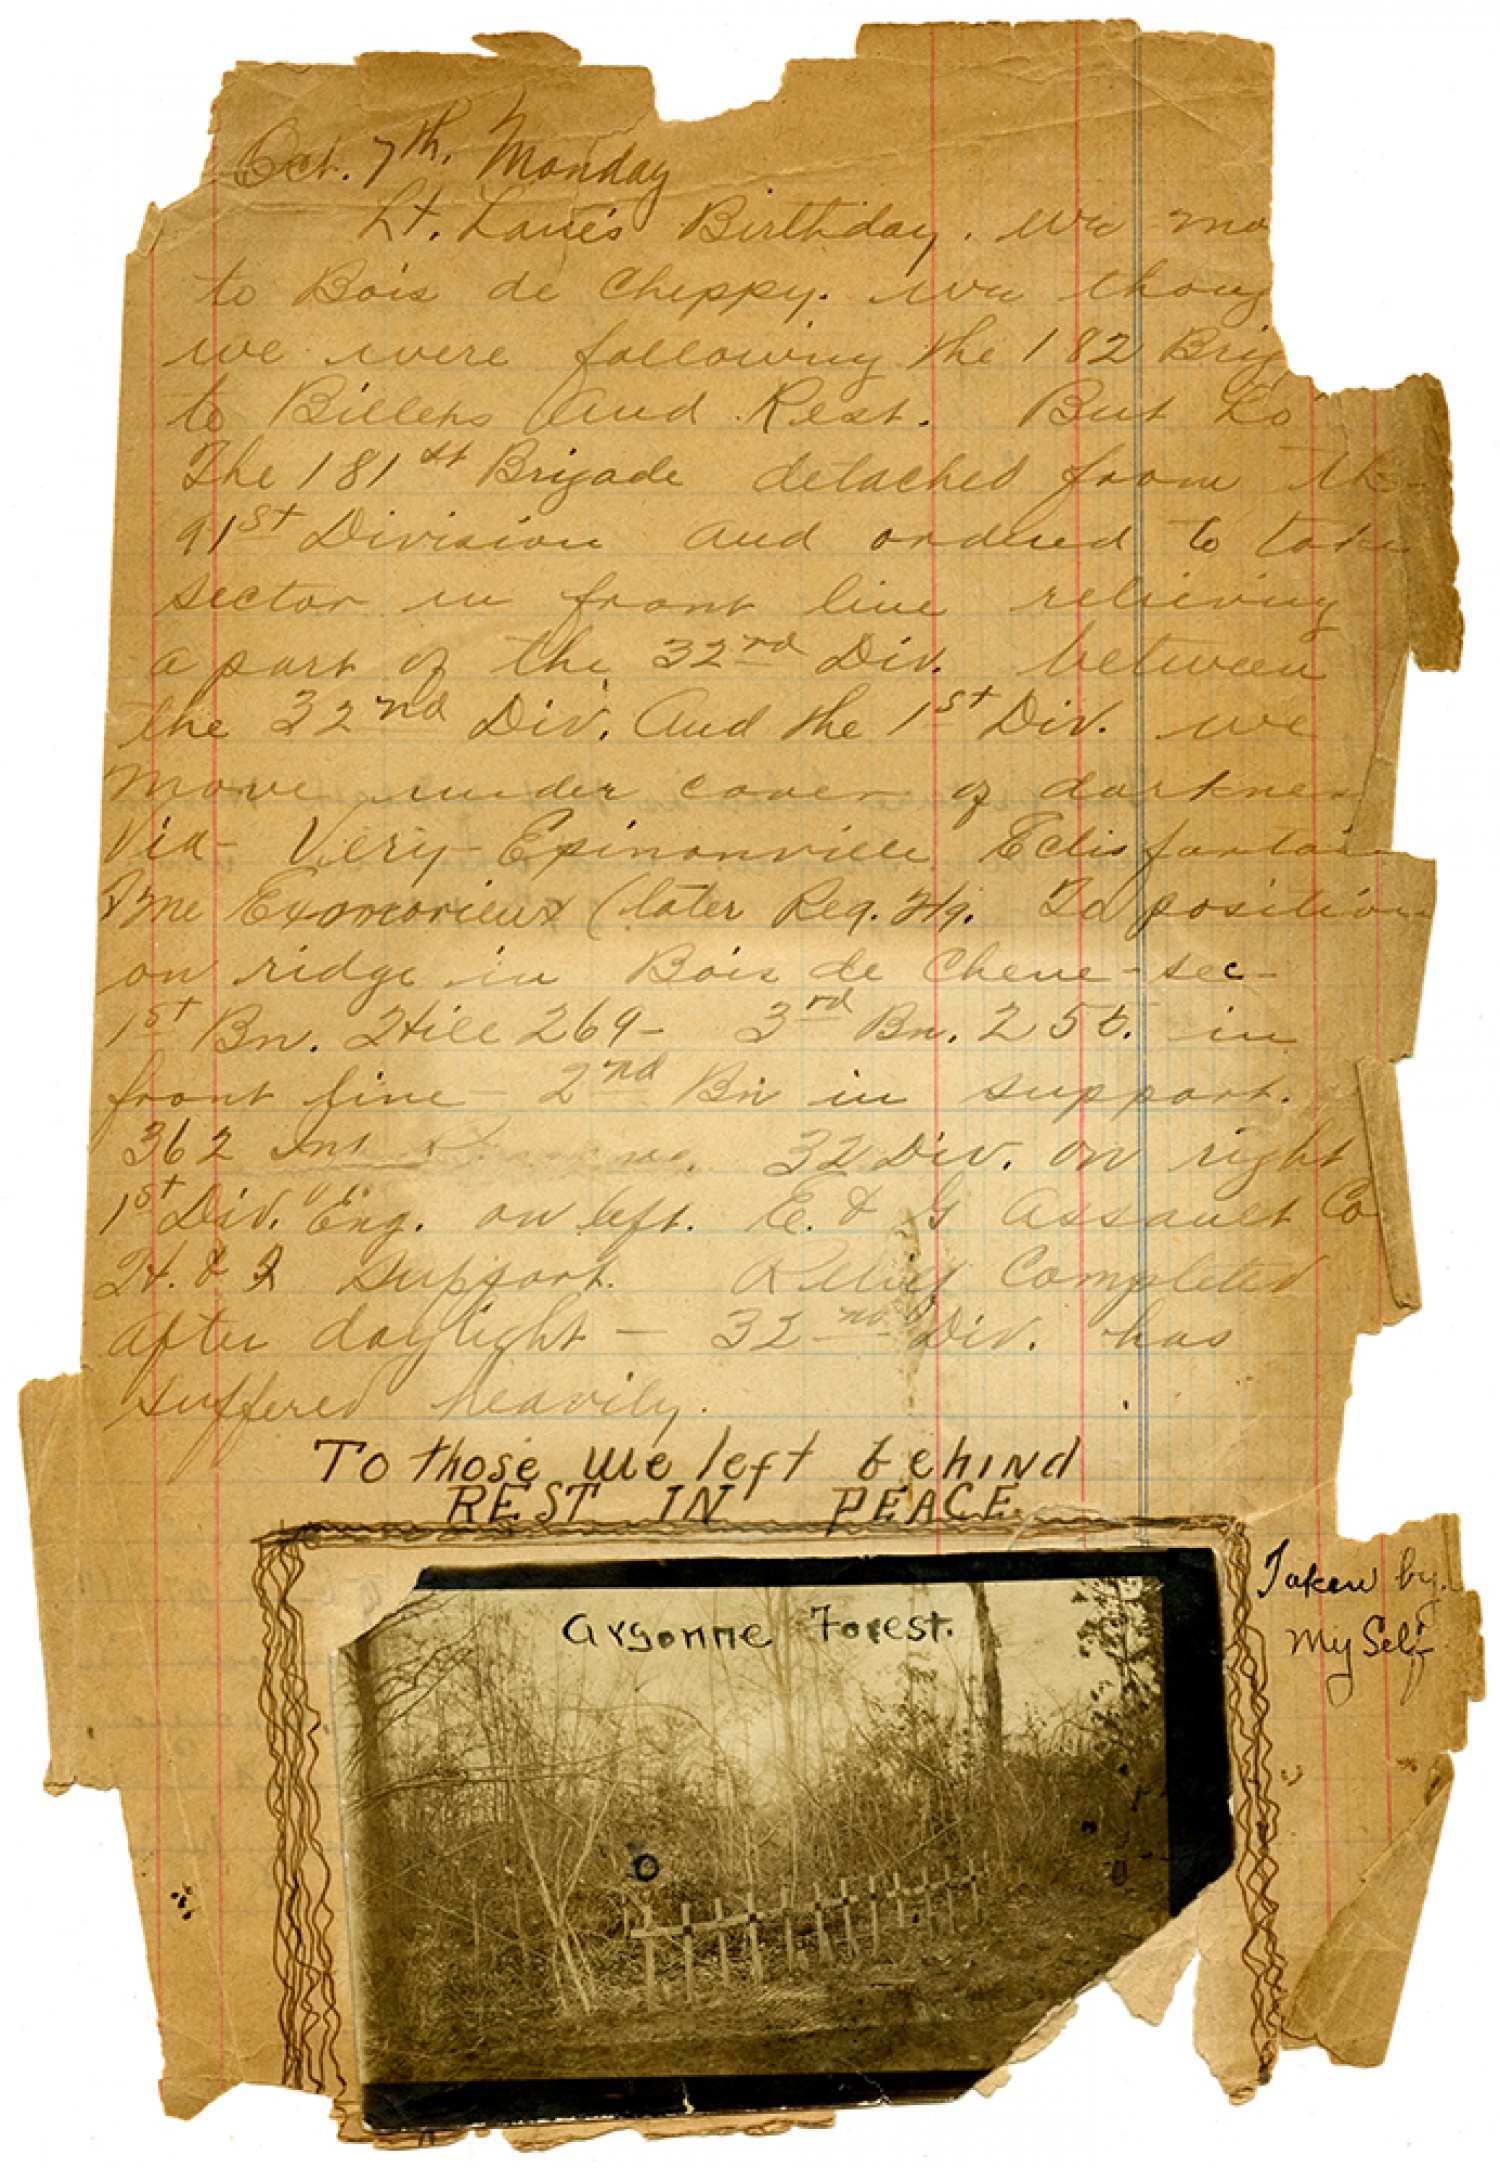 Oct. 7th. Monday
Lt. Lane's Birthday. We mo
to Bois de Cheppy. We thoug
we were following the 182 Brig
to Billets and Rest. But Lo
The 181st Brigade detached from th
91st Division and ordered to take
sector in front line relieving
a part of the 32nd Div. between
the 32nd Div. And the 1st Div. We
move under cover of darknes
Via - Very - Epinonville Eclisfontai
Exmorieux (later Reg. Hq. To position
on ridge in Bois de Chene-sec-
1st Bn. Hill 269- 3rd Bn. 255. in
front line - 2nd Bn in support.
362 Inf 32 Div. on right
1st Div. Eng. on left. E. & G Assault Co
H. & I Support. Relief Completed
after daylight - 32nd Div. has
suffered heavily.
To those we left behind
REST IN PEACE
Taken by
My Self
Argonne Forest.